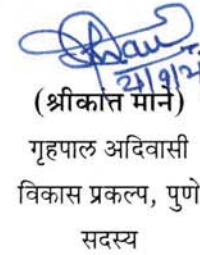 (श्रीकांत माने)
गृहपाल अदिवासी
विकास प्रकल्प, पुणे
सदस्य